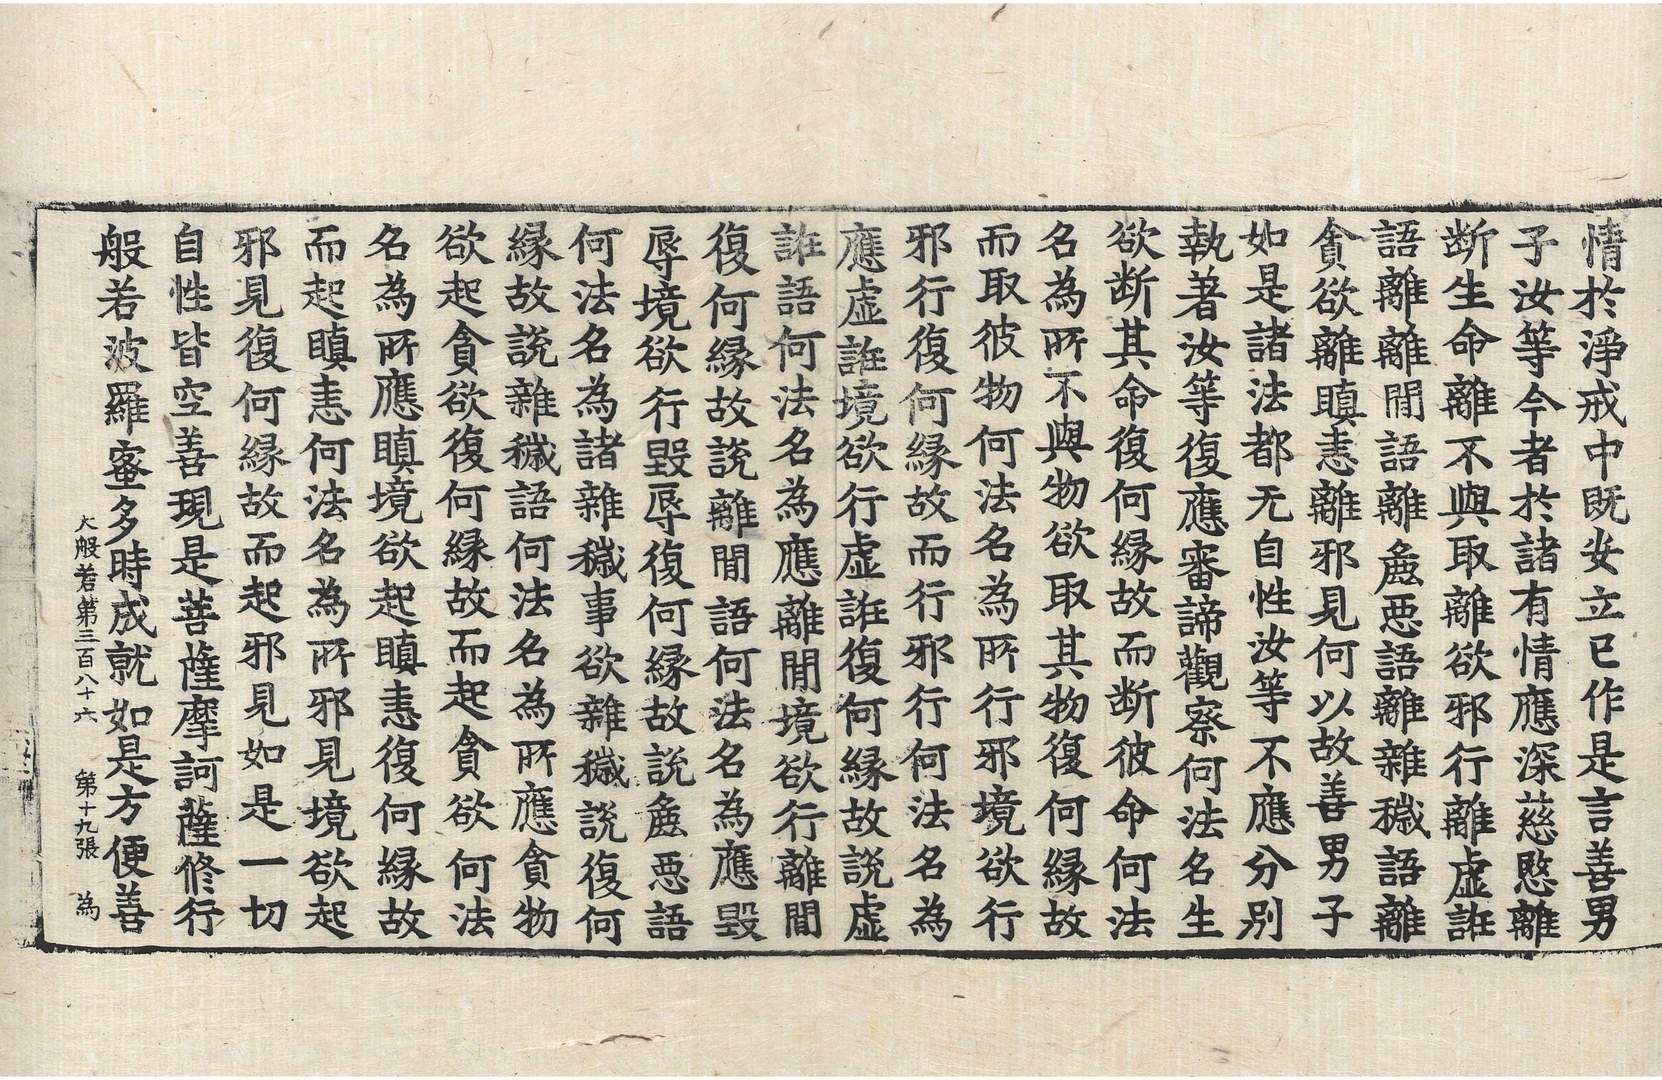 情於淨戒中既安立已作是言善男
子汝等今者於諸有情應深慈愍離
断生命離不與取離欲邪行離虛誑
語離離間語離麁惡語離雜穢語離
貪欲離瞋恚離邪見何以故善男子
如是諸法都无自性汝等不應分別
執著汝等復應審諦觀察何法名生
欲断其命復何縁故而断彼命何法
名為所不與物欲取其物復何縁故
而取彼物何法名為所行邪境欲行
邪行復何縁故而行邪行何法名為
應虛誑境欲行虛誑復何縁故說虛
誑語何法名為應離間境欲行離間
復何縁故說離間語何法名為應毀
辱境欲行毀辱復何縁故說麁惡語
何法名為諸雜穢事欲雜穢說復何
縁故說雜穢語何法名為所應貪物
欲起貪欲復何縁故而起貪欲何法
名為所應瞋境欲起瞋恚復何縁故
而起瞋恚何法名為所邪見境欲起
邪見復何縁故而起邪見如是一切
自性皆空善現是菩薩摩訶薩修行
般若波羅蜜多時成就如是方便善
大般若第三百八十六 第十九張 為